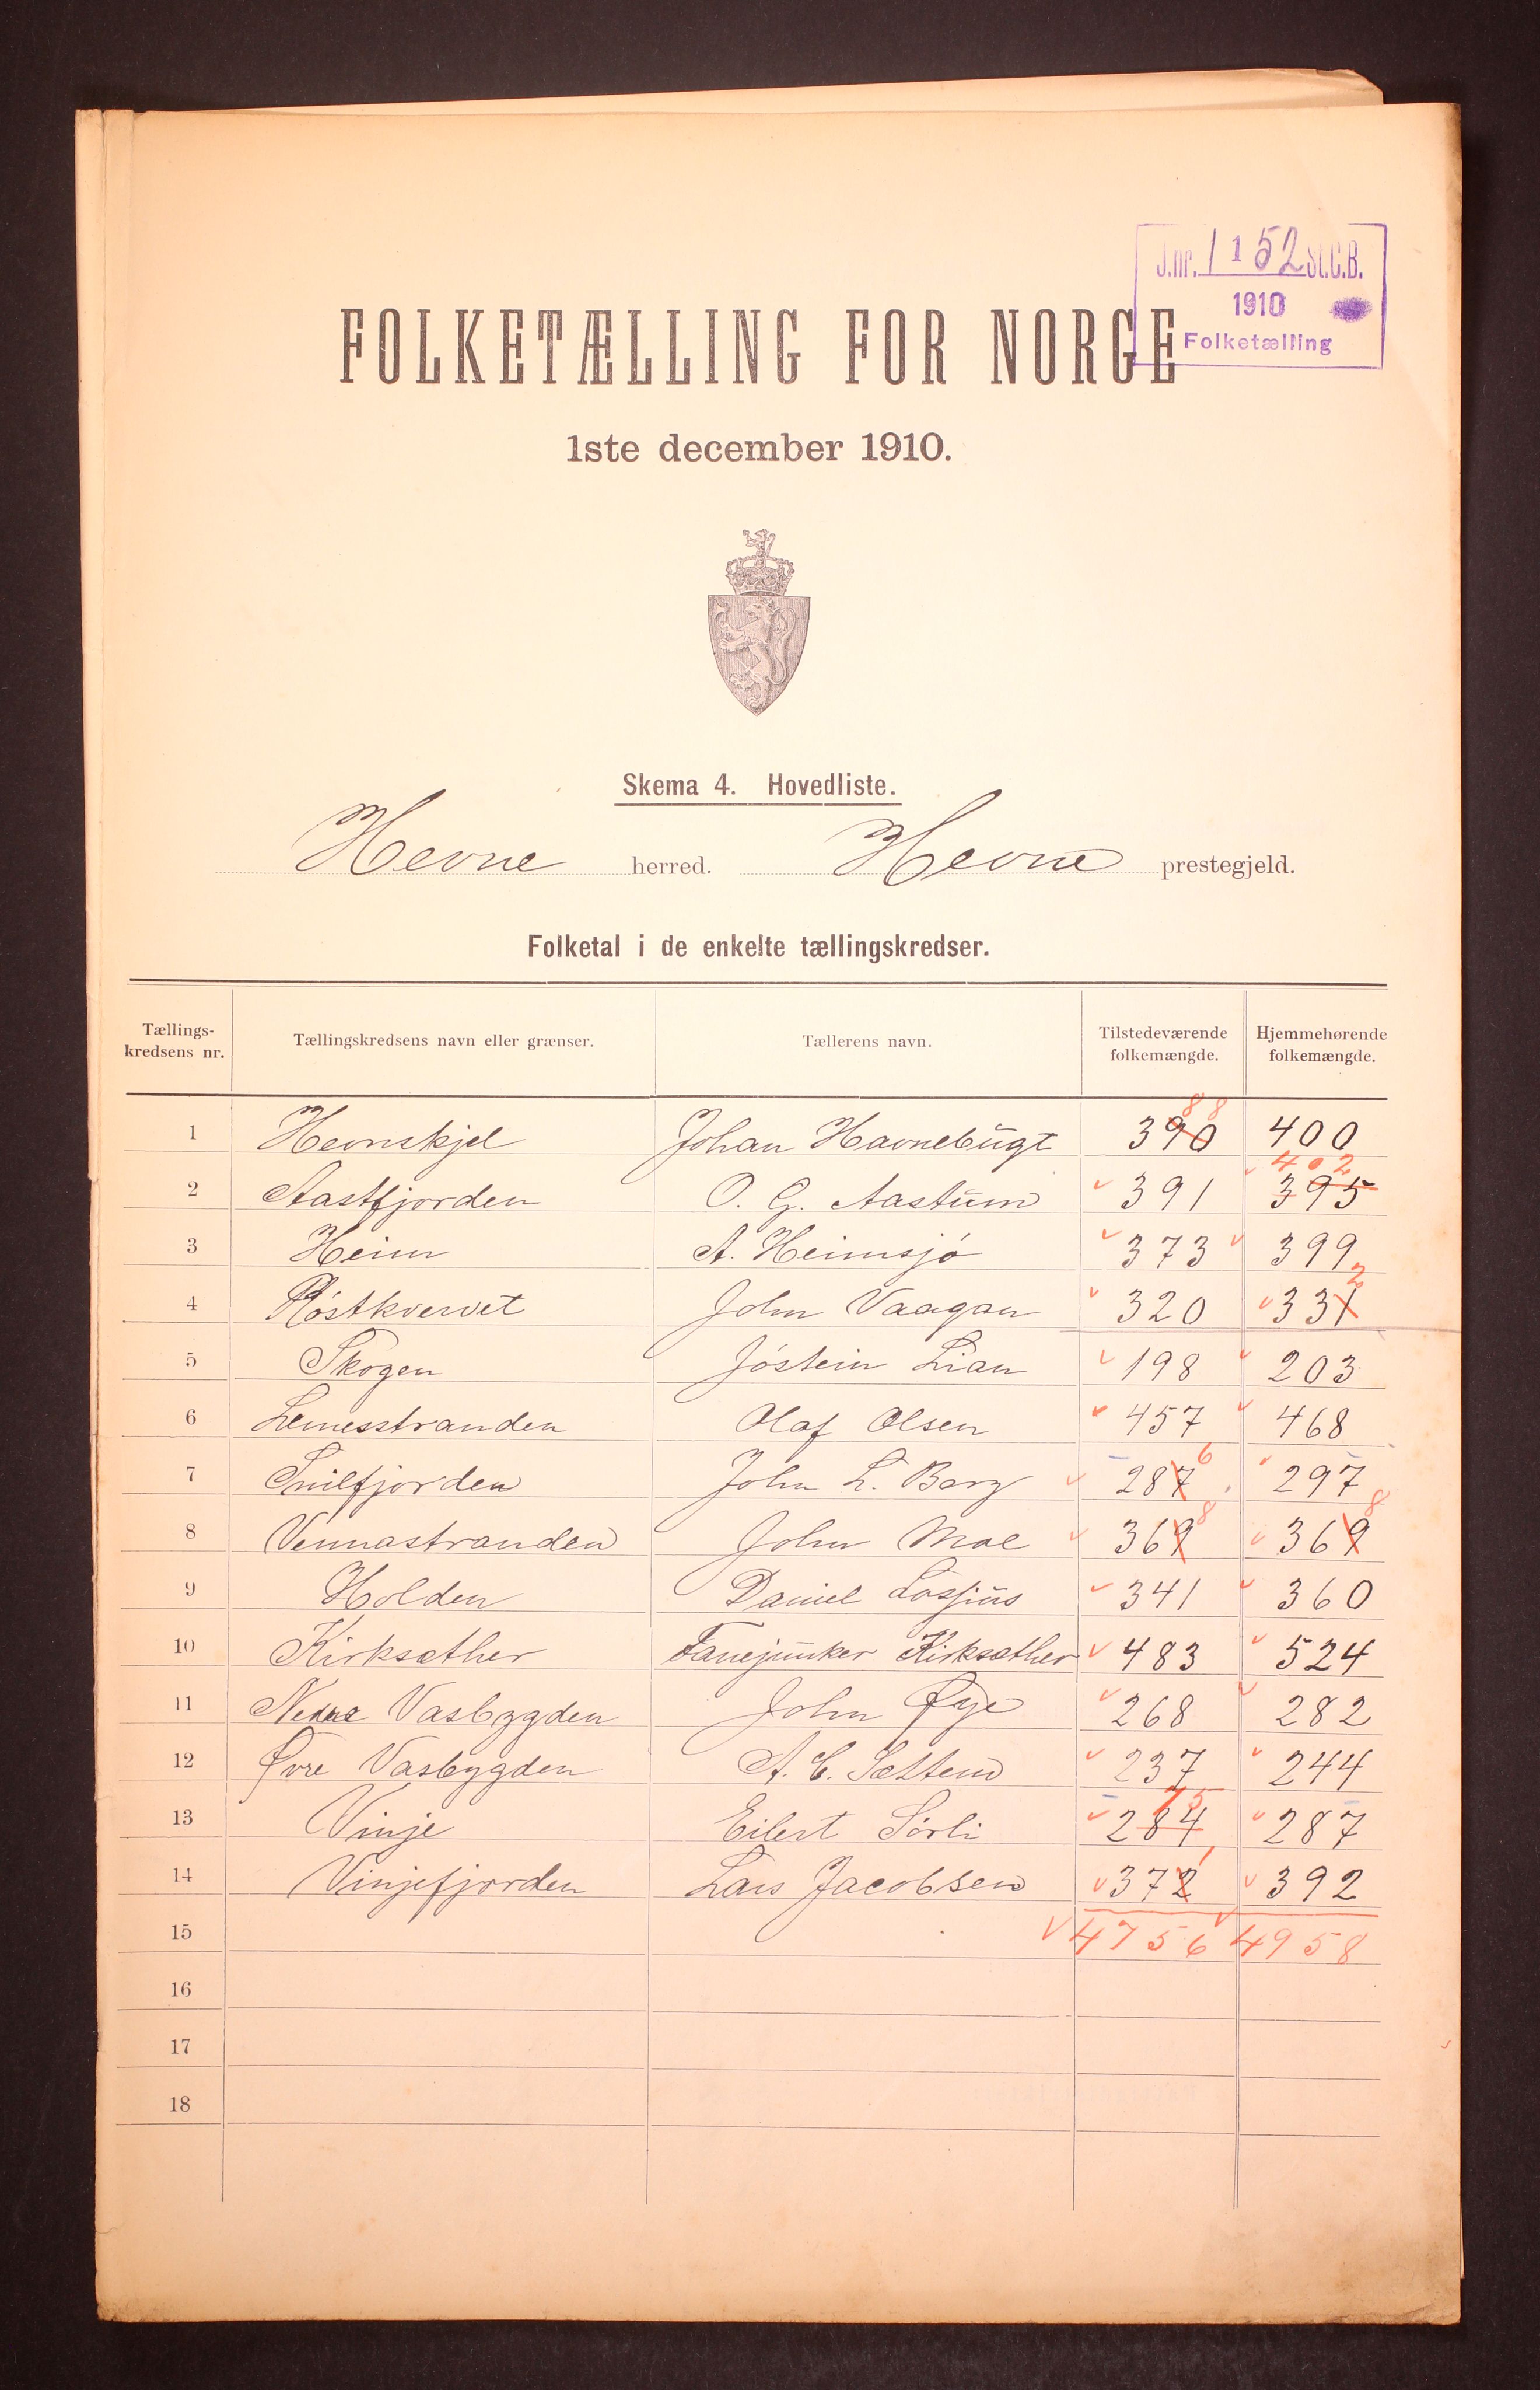 J.nr. 1152 St.C.B.
1910
Folketælling
FOLKETÆLLING FOR NORGE
1ste december 1910.
Skema 4. Hovedliste.
Hevne herred. Hevne prestegjeld.
Folketal i de enkelte tællingskredser.
Tællingskredsens nr. Tællingskredsens navn eller grænser. Tællerens navn. Tilstedeværende folkemængde. Hjemmehørende folkemængde.
1 Hevnskjel Johan Havnebugt 390 88 400
2 Aastfjorden O. G. Aastum 391 395 402
3 Heim A. Heimsjø 373 399
4 Røstkvervet John Vaagan 320 331 2
5 Skogen Jøstein Lian 198 203
6 Lemesstranden Olaf Olsen 457 468
7 Snilfjorden John L. Berg 287 6 297
8 Vennastranden John Moe 369 8 369 8
9 Holden Daniel Losjius 341 360
10 Kirksæther Fanejunker Kirksæther 483 524
11 Nedre Vasbygden John Øye 268 282
12 Øvre Vasbygden A. C. Sættem 237 244
13 Vinje Eilert Sørli 284 75 287
14 Vinjefjorden Lars Jacobsen 372 1 392
15 4756 4958
16
17
18